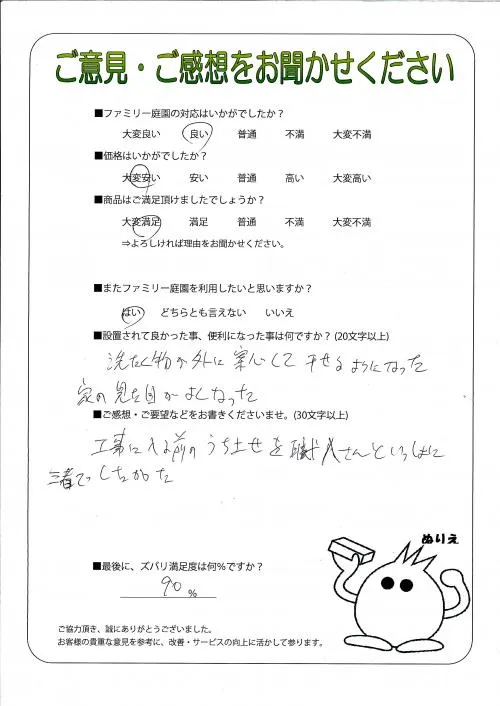 ご意見・ご感想をお聞かせください
■ファミリー庭園の対応はいかがでしたか？
大変良い 良い 普通 不満 大変不満
■価格はいかがでしたか？
大変安い 安い 普通 高い 大変高い
■商品はご満足頂けましたでしょうか？
大変満足 満足 普通 不満 大変不満
⇒よろしければ理由をお聞かせください。
■またファミリー庭園を利用したいと思いますか？
はい どちらとも言えない いいえ
■設置されて良かった事、便利になった事は何ですか？(20文字以上)
洗たく物が外に安心して干せるようになった
家の見た目がよくなった
■ご感想・ご要望などをお書きくださいませ。(30文字以上)
工事に入る前のうち合せを職人さんといっしょに
したかった
ぬりえ
■最後に、ズバリ満足度は何%ですか？
90 %
ご協力頂き、誠にありがとうございました。
お客様の貴重な意見を参考に、改善・サービスの向上に活かして参ります。